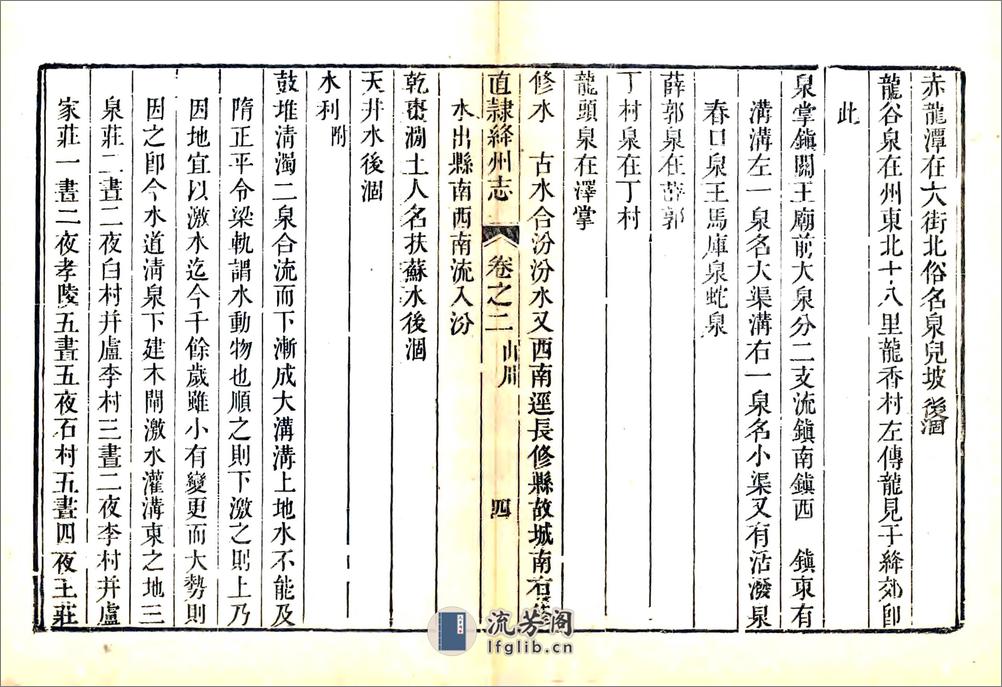 赤龍潭在大街北俗名泉兒坡後涸
龍谷泉在州東北十八里龍香村左傳龍見于絳郊即
此
泉掌鎮關王廟前大泉分二支流鎮南鎮西　鎮東有
溝溝左一泉名大渠溝右一泉名小渠又有活潑泉
春口泉王馬庫泉蛇泉
薛郭泉在薛郭
丁村泉在丁村
龍頭泉在澤掌
修水　古水合汾汾水又西南逕長修縣故城南右
直隸絳州志　卷之二　山川　四
水出縣南西南流入汾
乾棗澗土人名扶蘇水後涸
天井水後涸
水利附
鼓堆清濁二泉合流而下漸成大溝溝上地水不能及
隋正平令梁軌謂水動物也順之則下激之則上乃
因地宜以激水迄今千餘歲雖小有變更而大勢則
因之即今水道清泉下建木閘激水灌溝東之地三
泉莊二晝二夜白村并盧李村三晝二夜李村并盧
家莊一晝二夜孝陵五晝五夜石村五晝四夜王莊
流芳阁
lfglib.cn